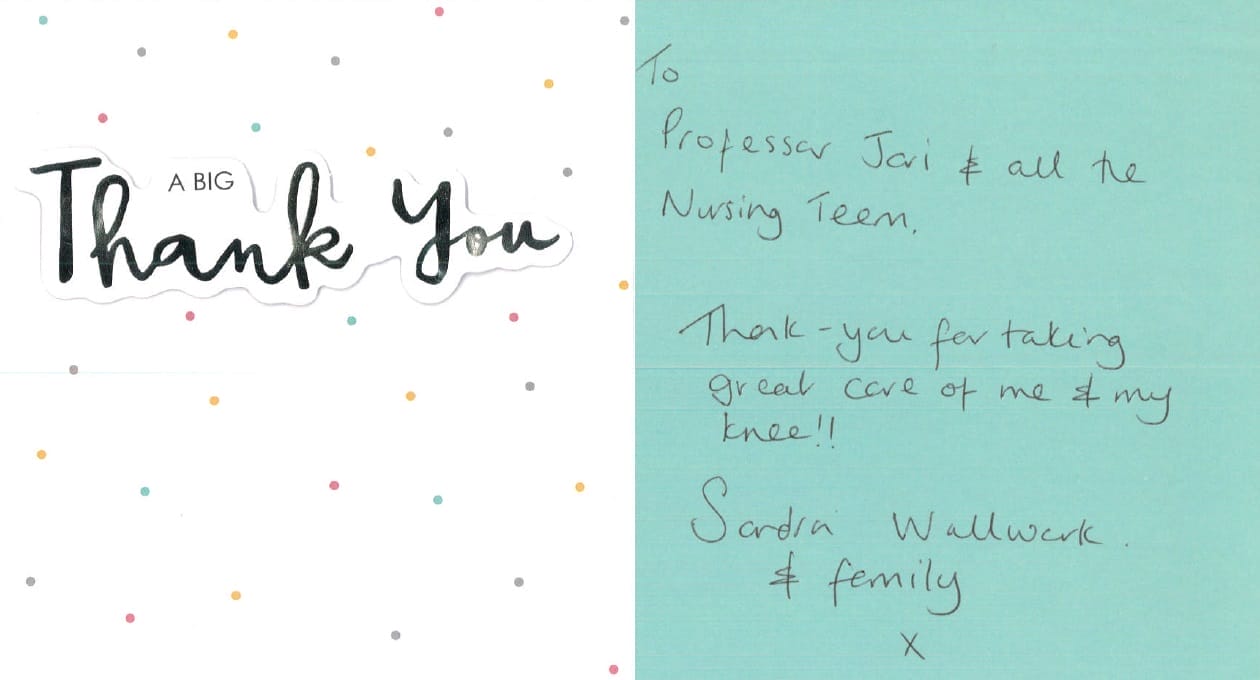 A BIG
Thank You
To
Professor Jari & all the
Nursing Team,
Thank-you for taking
great care of me & my
knee!!
Sandra Wallwork.
& family
x